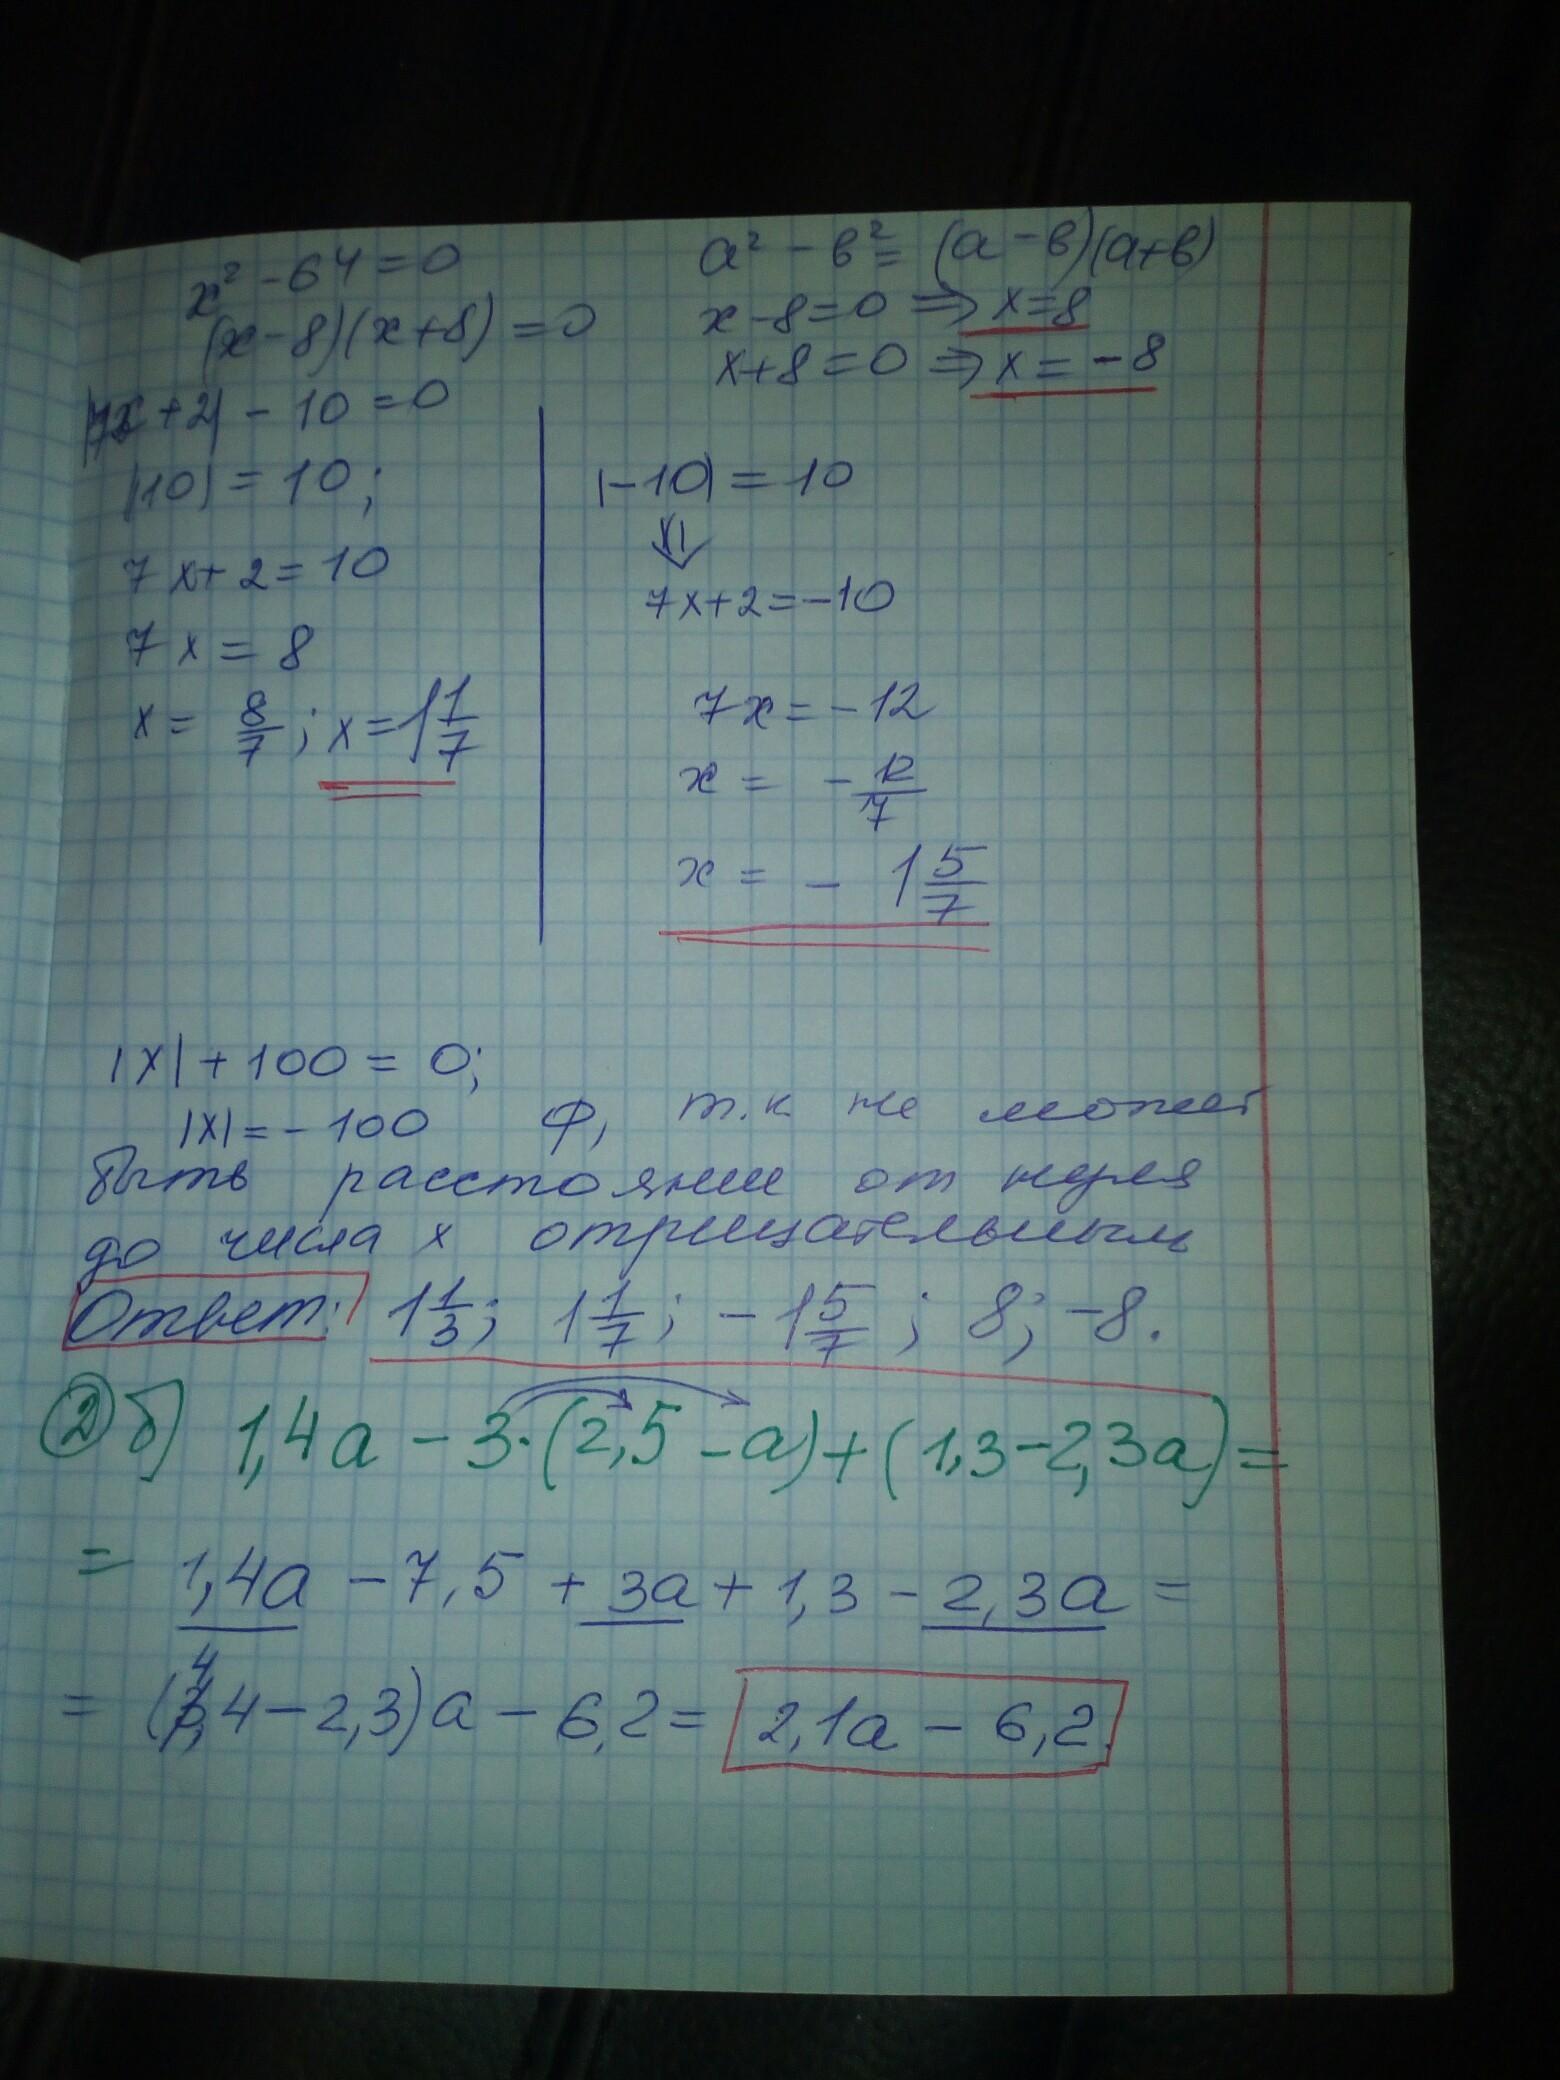 x² - 64 = 0
a² - в² = (a - в)(a+в)
(x - 8)(x + 8) = 0
x - 8 = 0 ⇒ x = 8
x + 8 = 0 ⇒ x = - 8
|7x + 2| - 10 = 0
|10| = 10;
|-10| = 10
⇓
7x + 2 = 10
7x + 2 = -10
7x = 8
7x = -12
x = 8/7; x = 1 1/7
x = - 12/7
x = - 1 5/7
|x| + 100 = 0;
|x| = - 100 ф, т.к не может
быть расстояние от нуля
до числа x отрицательным
Ответ: 1 1/3; 1 1/7; - 1 5/7; 8; -8.
② б) 1,4a - 3·(2,5 - a) + (1,3 - 2,3a) =
= 1,4a - 7,5 + 3a + 1,3 - 2,3a =
= (4,4 - 2,3)a - 6,2 = 2,1a - 6,2.